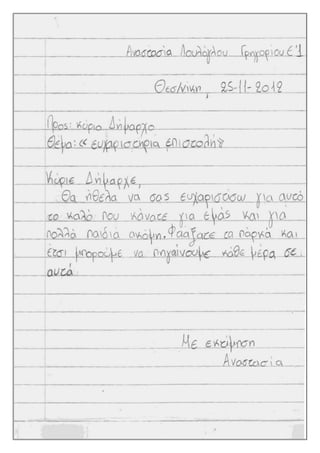 Αναστασία Πουλόγλου Γρηγορίου Ε'1
Θεσ/νίκη, 25-11-2012
Προς: κύριο Δήμαρχο
Θέμα: «ευχαριστήρια επιστολή»
Κύριε Δήμαρχε,
Θα ήθελα να σας ευχαριστίσω για αυτό
το καλό που κάνατε για εμάς και για
πολλά παιδιά ακόμη. Φτιάξατε τα πάρκα και
έτσι μπορούμε να πηγαίνουμε κάθε μέρα σε
αυτά
Με εκτίμηση
Αναστασία